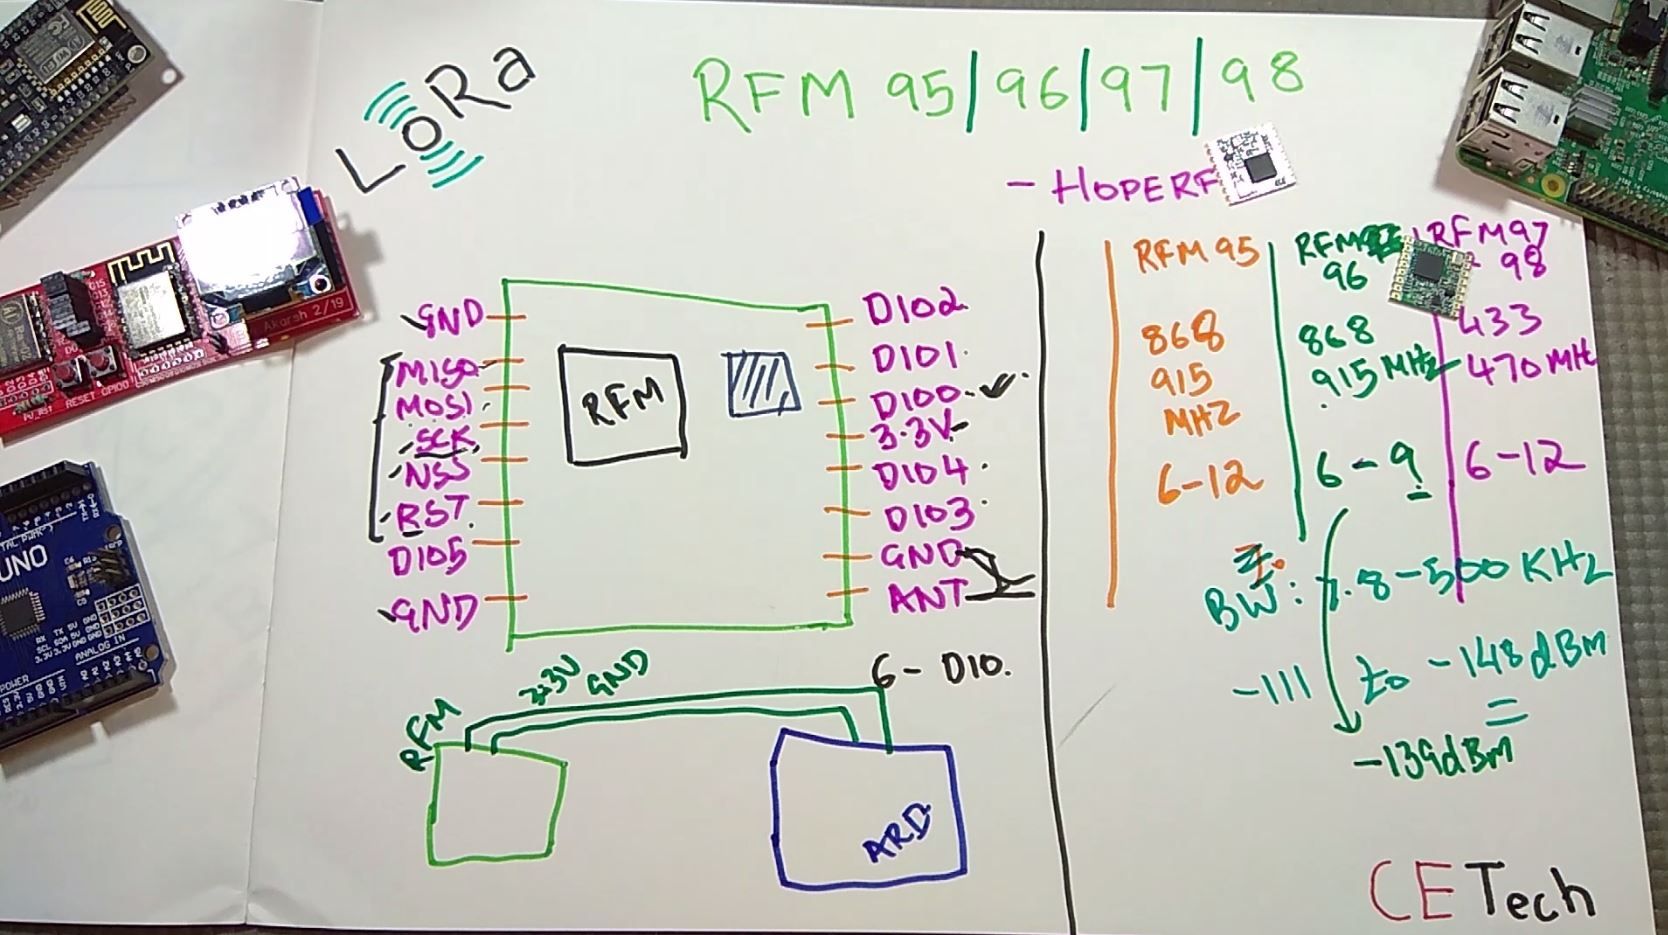 LoRa
RFM 95/96/97/98
- HOPERF
GND
MISO
MOSI
SCK
NSS
RST
DIO5
GND
RFM
DIO2
DIO1
DIO0
3.3V
DIO4
DIO3
GND
ANT
6 - DIO.
RFM
3.3V
GND
ARD
RFM 95
868
915
MHZ
6-12
96
868
915 MHz
6-9
RFM97
98
433
470 MHz
6-12
BW: 7.8-500 KHz
-111 to -148dBm
-139dBm
CETech
Akarsh 2/19
RESET
GPIO0
UNO
ANALOG IN
POWER